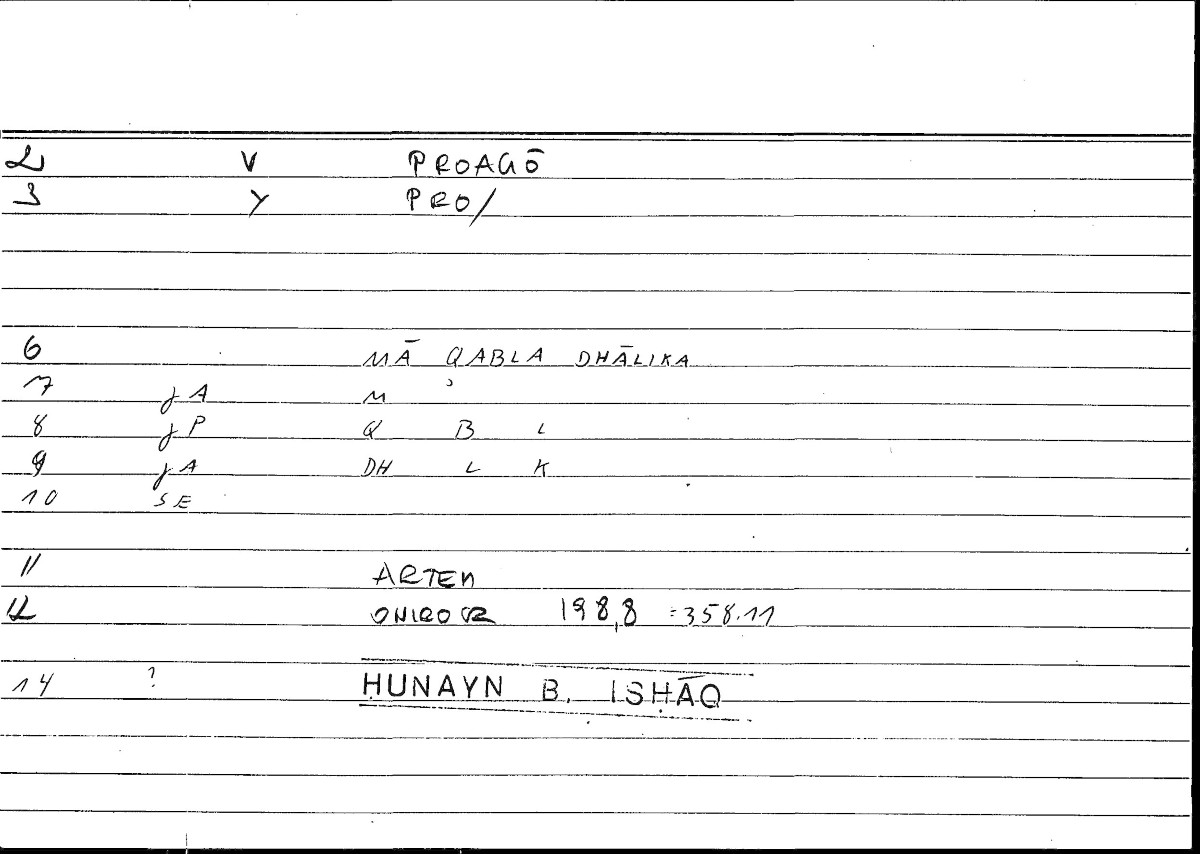 2 V PROAGŌ
3 Y PRO/
6 MĀ QABLA DHĀLIKA
7 jA M ʾ
8 jP Q B L
9 jA DH L K
10 SE
11 ARTEM
12 ONIROCR 198,8 =358.11
14 ? ḤUNAYN B. ISḤĀQ